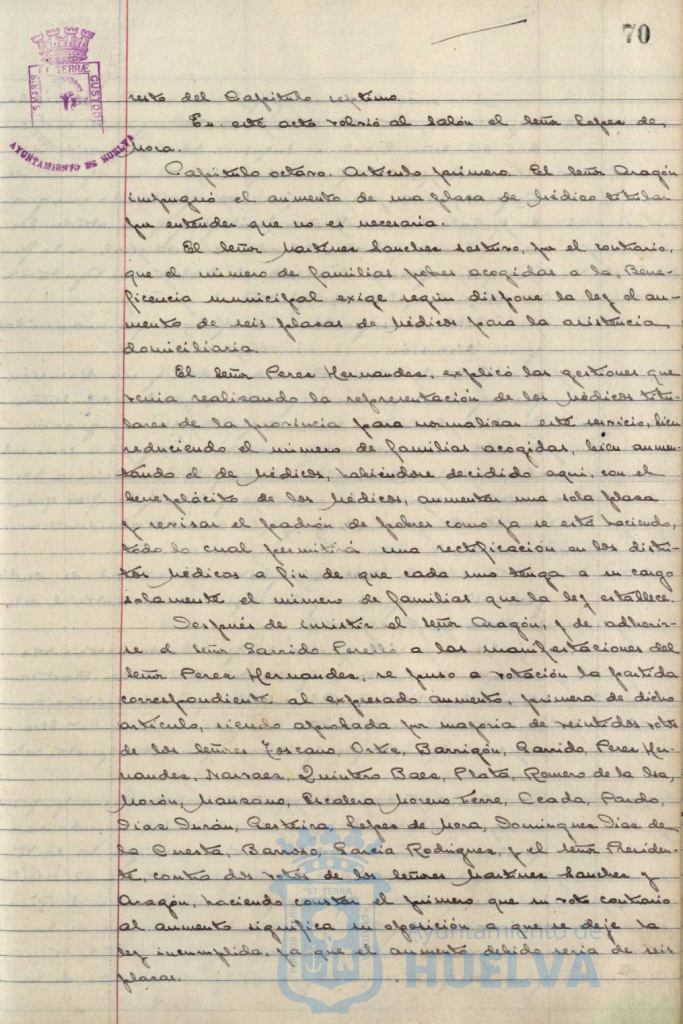 70
ET TERRÆ
CUSTODI
AYUNTAMIENTO DE HUELVA
resto del Capitulo septimo.
En este acto volvió al salón el Señor Lopez de
Mora.
Capitulo octavo. Articulo primero. El Señor Aragón
impugnó el aumento de una plaza de Médico titular
por entender que no es necesaria.
El Señor Martinez Sanchez sostuvo, por el contrario,
que el número de familias pobres acogidas a la Bene-
ficencia municipal exige según dispone la ley el au-
mento de seis plazas de Médicos para la asistencia
domiciliaria.
El Señor Perez Hernandez, explicó las gestiones que
venia realizando la representación de los Médicos titu-
lares de la provincia para normalizar este servicio, bien
reduciendo el número de familias acogidas, bien aumen-
tando el de Médicos, habiendose decidido aqui, con el
beneplácito de los Médicos, aumentar una sola plaza
y revisar el padrón de pobres como ya se está haciendo,
todo lo cual permitirá una rectificación en los distri-
tos Médicos a fin de que cada uno tenga a su cargo
solamente el número de familias que la ley establece.
Después de insistir el Señor Aragón, y de adherir-
se el Señor Garrido Perelló a las manifestaciones del
Señor Perez Hernandez, se puso a votación la partida
correspondiente al expresado aumento, primera de dicho
articulo, siendo aprobada por mayoria de veintidos votos
de los Señores Toscano, Ortiz, Barrigón, Garrido, Perez Her-
nandez, Narvaez, Quintero Baez, Plata, Romero de la Isa,
Morón, Manzano, Escalera, Moreno Ferre, Ceada, Pardo,
Diaz Durán, Gesteira, Lopez de Mora, Dominguez, Diaz de
la Cuesta, Barroso, Garcia Rodriguez, y el Señor Presiden-
te, contra dos votos de los Señores Martinez Sanchez y
Aragón, haciendo constar el primero que su voto contrario
al aumento significa su oposición a que se deje la
ley incumplida, ya que el aumento debido seria de seis
plazas.
ET TERRÆ
Ayuntamiento de
HUELVA